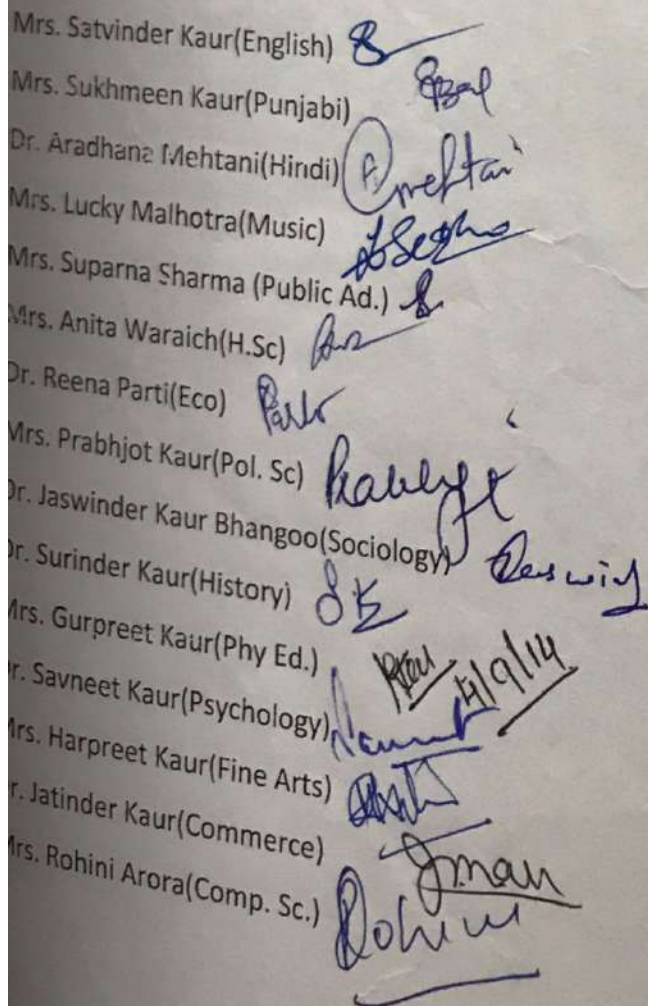 Mrs. Satvinder Kaur(English)
Mrs. Sukhmeen Kaur(Punjabi)
Dr. Aradhana Mehtani(Hindi) A mehtani
Mrs. Lucky Malhotra(Music)
Mrs. Suparna Sharma (Public Ad.)
Mrs. Anita Waraich(H.Sc)
Dr. Reena Parti(Eco) Parti
Mrs. Prabhjot Kaur(Pol. Sc) Prabhjot
Dr. Jaswinder Kaur Bhangoo(Sociology)
Dr. Surinder Kaur(History) SK
Mrs. Gurpreet Kaur(Phy Ed.) 4/9/14
r. Savneet Kaur(Psychology)
Mrs. Harpreet Kaur(Fine Arts)
r. Jatinder Kaur(Commerce) Jman
Mrs. Rohini Arora(Comp. Sc.) Rohini